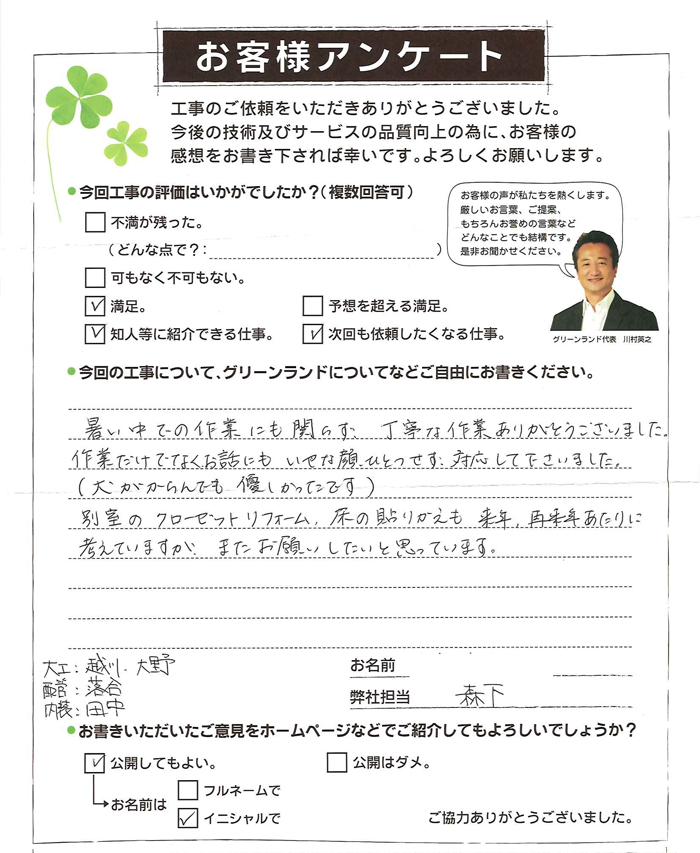 お客様アンケート
工事のご依頼をいただきありがとうございました。
今後の技術及びサービスの品質向上の為に、お客様の
感想をお書き下されば幸いです。よろしくお願いします。
●今回工事の評価はいかがでしたか?(複数回答可)
不満が残った。
(どんな点で?: )
可もなく不可もない。
満足。
予想を超える満足。
知人等に紹介できる仕事。
次回も依頼したくなる仕事。
お客様の声が私たちを熱くします。
厳しいお言葉、ご提案、
もちろんお誉めの言葉など
どんなことでも結構です。
是非お聞かせください。
グリーンランド代表 川村英之
●今回の工事について、グリーンランドについてなどご自由にお書きください。
暑い中での作業にも関らず、丁寧な作業ありがとうございました。
作業だけでなくお話にも いやな顔ひとつせず、対応して下さいました。
(犬がからんでも 優しかったです)
別室の クローゼットリフォーム、床の貼りかえも 来年、再来年あたりに
考えていますが、またお願いしたいと思っています。
大工:越川・大野
落合
内装:田中
お名前
弊社担当 森下
●お書きいただいたご意見をホームページなどでご紹介してもよろしいでしょうか?
公開してもよい。
公開はダメ。
お名前は
フルネームで
イニシャルで
ご協力ありがとうございました。